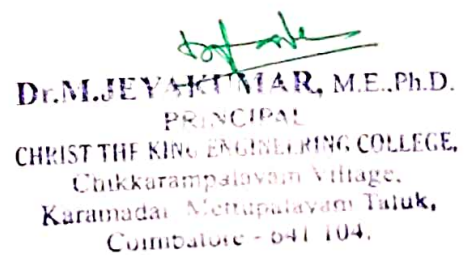 Dr.M.JEYAKUMAR, M.E.,Ph.D.
PRINCIPAL
CHRIST THE KING ENGINEERING COLLEGE,
Chikkarampalayam Village,
Karamadai Mettupalayam Taluk,
Coimbatore - 641 104.